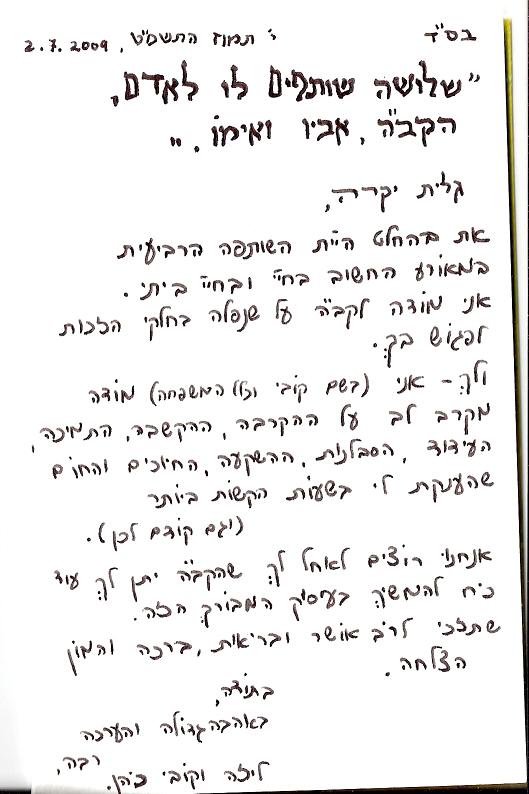 בס"ד
י' תמוז התשס"ט, 2.7.2009
"שלושה שותפים לו לאדם,
הקב"ה, אביו ואימו."
גלית יקרה,
את בהחלט היית השותפה הרביעית
במאורע החשוב בחיי ובחיי ביתי.
אני מודה לקב"ה על שנפלה בחלקי הזכות
לפגוש בך.
ולך - אני (בשם קובי וכלל המשפחה) מודה
מקרב לב על ההקרבה, ההקשבה, התמיכה,
העידוד, הסבלנות, ההשקעה, החיוכים והחום
שהענקת לי בשעות הקשות ביותר
(וגם קודם לכן).
אנחנו רוצים לאחל לך שהקב"ה יתן לך עוד
כוח להמשיך בעיסוק המבורך הזה.
שתזכי לרוב אושר ובריאות, ברכה והמון
הצלחה.
בתודה,
באהבה גדולה והערכה
רבה,
ליזה וקובי כהן.